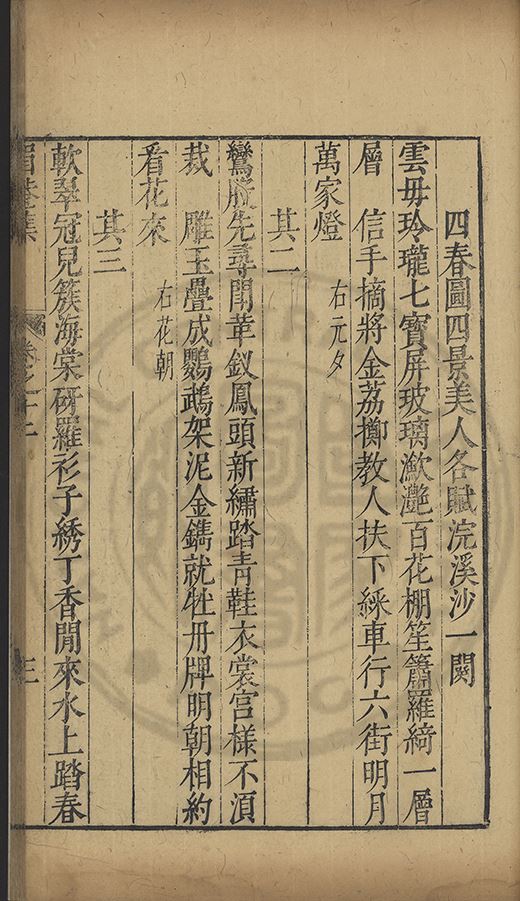 四春圖四景美人各賦浣溪沙一闋
雲毋玲瓏七寶屏玻璃瀲灧百花棚笙簫羅綺一層
層　信手摘將金荔擲教人扶下綵車行六街明月
萬家燈　右元夕
其二
鸞 先尋鬥草釵鳳頭新繡踏青鞋衣裳宮樣不湏
裁　雕玉疊成鸚鵡架泥金鐫就牡丹牌明朝相約
看花來　右花朝
其三
軟翠冠兒簇海棠砑羅衫子綉丁香閒來水上踏春
眉菴集　卷之十二　三